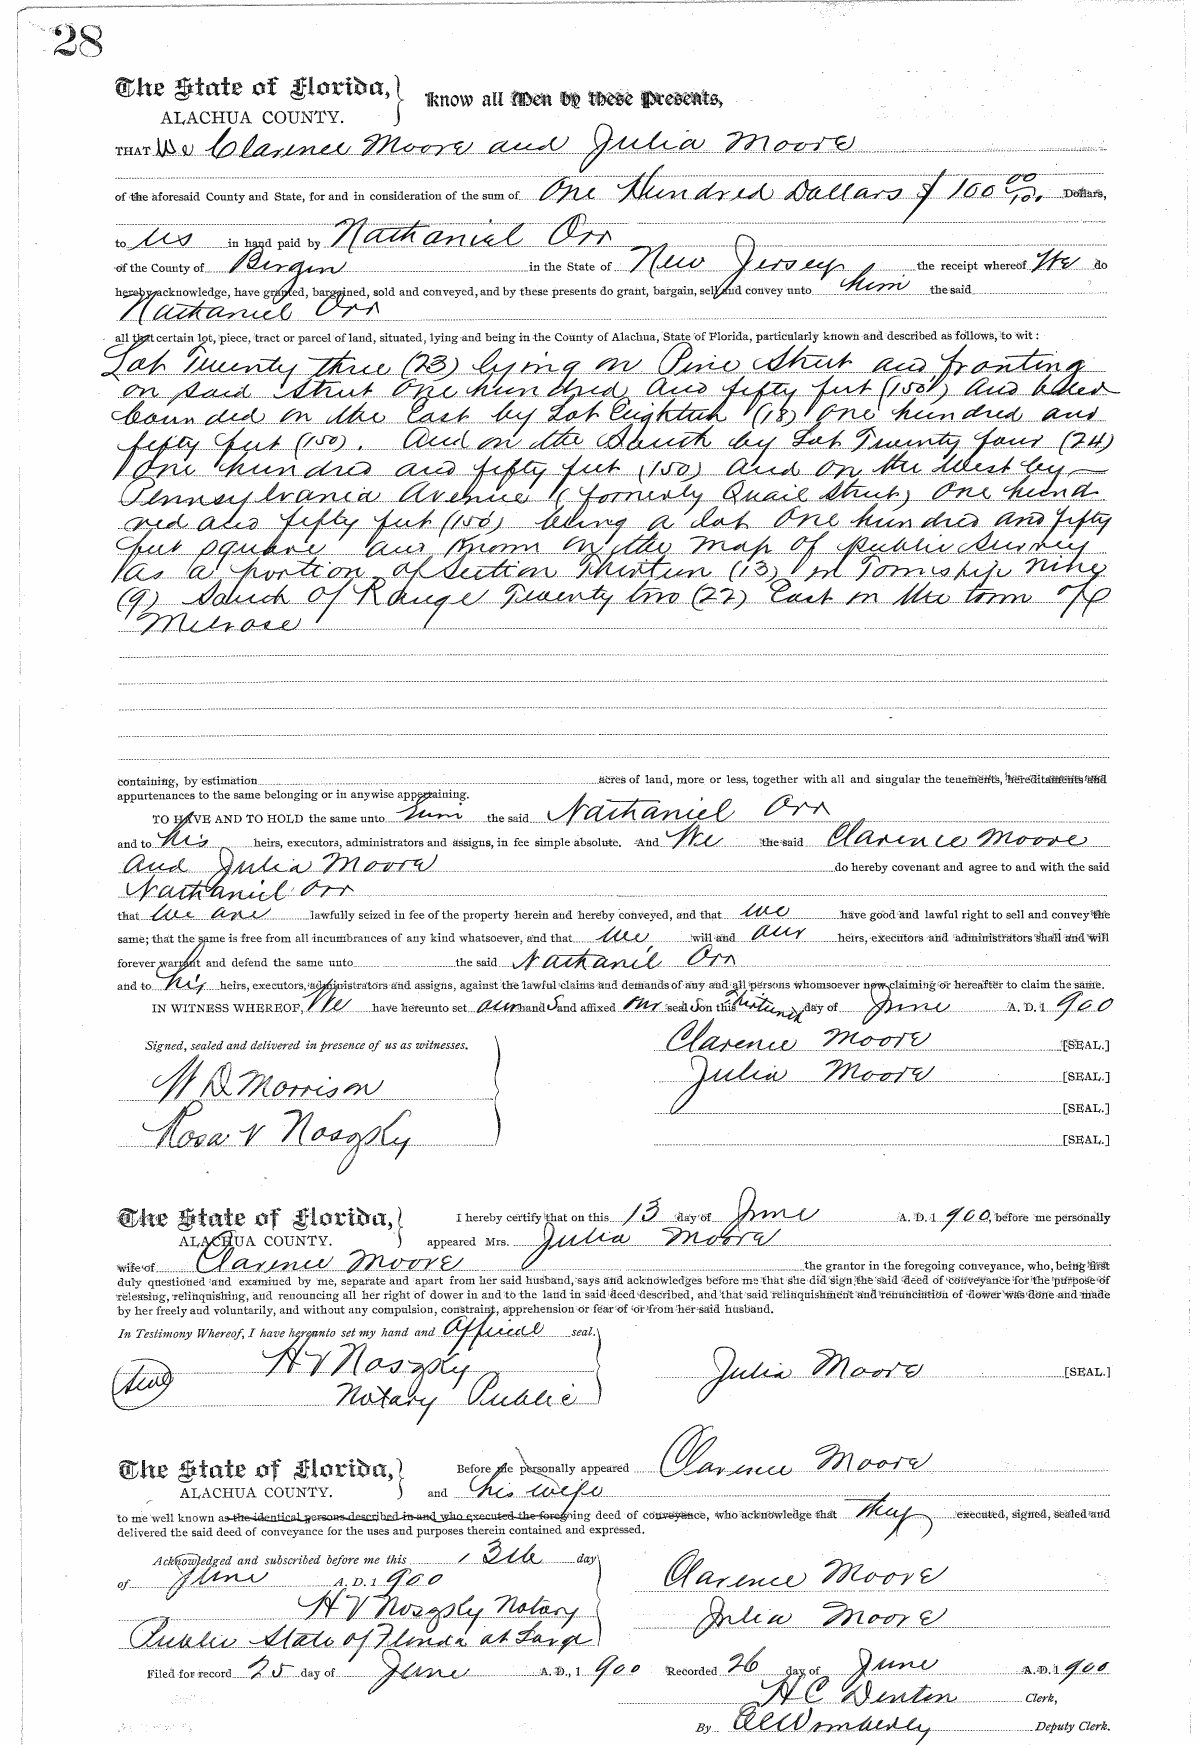 28
The State of Florida,
ALACHUA COUNTY.
Know all Men by these Presents,
THAT We Clarence Moore and Julia Moore
of the aforesaid County and State, for and in consideration of the sum of One Hundred Dollars $ 100 00/100 Dollars,
to us in hand paid by Nathaniel Orr
of the County of Bergen in the State of New Jersey the receipt whereof We do
hereby acknowledge, have granted, bargained, sold and conveyed, and by these presents do grant, bargain, sell and convey unto him the said
Nathaniel Orr
all that certain lot, piece, tract or parcel of land, situated, lying and being in the County of Alachua, State of Florida, particularly known and described as follows, to wit:
Lot Twenty three (23) lying on Pine Street and fronting
on said Street One hundred and fifty feet (150) and
bounded on the East by Lot Eighteen (18) One hundred and
fifty feet (150). And on the South by Lot Twenty four (24)
One hundred and fifty feet (150) and on the West by
Pennsylvania Avenue (formerly Quail Street) One hund
red and fifty feet (150) being a lot One hundred and fifty
feet square and known on the map of public survey
as a portion of Section Thirteen (13) in Township nine
(9) South of Range Twenty two (22) East in the town of
Melrose
containing, by estimation acres of land, more or less, together with all and singular the tenements, hereditaments and
appurtenances to the same belonging or in anywise appertaining.
TO HAVE AND TO HOLD the same unto him the said Nathaniel Orr
and to his heirs, executors, administrators and assigns, in fee simple absolute. And We the said Clarence Moore
and Julia Moore do hereby covenant and agree to and with the said
Nathaniel Orr
that we are lawfully seized in fee of the property herein and hereby conveyed, and that we have good and lawful right to sell and convey the
same; that the same is free from all incumbrances of any kind whatsoever, and that we will and our heirs, executors and administrators shall and will
forever warrant and defend the same unto the said Nathanil Orr
and to his heirs, executors, administrators and assigns, against the lawful claims and demands of any and all persons whomsoever now claiming or hereafter to claim the same.
IN WITNESS WHEREOF, We have hereunto set our hands and affixed our seals on this thirteenth day of June A. D. 1900
Signed, sealed and delivered in presence of us as witnesses.
Clarence Moore [SEAL.]
W D Morrison
Julia Moore [SEAL.]
[SEAL.]
Rosa V Nosgsky
[SEAL.]
The State of Florida,
ALACHUA COUNTY.
I hereby certify that on this 13 day of June A. D. 1900, before me personally
appeared Mrs. Julia Moore
wife of Clarence Moore the grantor in the foregoing conveyance, who, being first
duly questioned and examined by me, separate and apart from her said husband, says and acknowledges before me that she did sign the said deed of conveyance for the purpose of
releasing, relinquishing, and renouncing all her right of dower in and to the land in said deed described, and that said relinquishment and renunciation of dower was done and made
by her freely and voluntarily, and without any compulsion, constraint, apprehension or fear of or from her said husband.
In Testimony Whereof, I have hereunto set my hand and official seal.
(Seal) H V Nosgsky
Julia Moore [SEAL.]
Notary Public
The State of Florida,
ALACHUA COUNTY.
Before me personally appeared Clarence Moore
and his wife
to me well known as the identical persons described in and who executed the foregoing deed of conveyance, who acknowledge that they executed, signed, sealed and
delivered the said deed of conveyance for the uses and purposes therein contained and expressed.
Acknowledged and subscribed before me this 13th day
of June A. D. 1900
Clarence Moore
H V Nosgsky Notary
Julia Moore
Public State of Florida at Large
Filed for record 25 day of June A. D., 1900 Recorded 26 day of June A. D. 1900
H C Denton Clerk,
By Womberly Deputy Clerk.